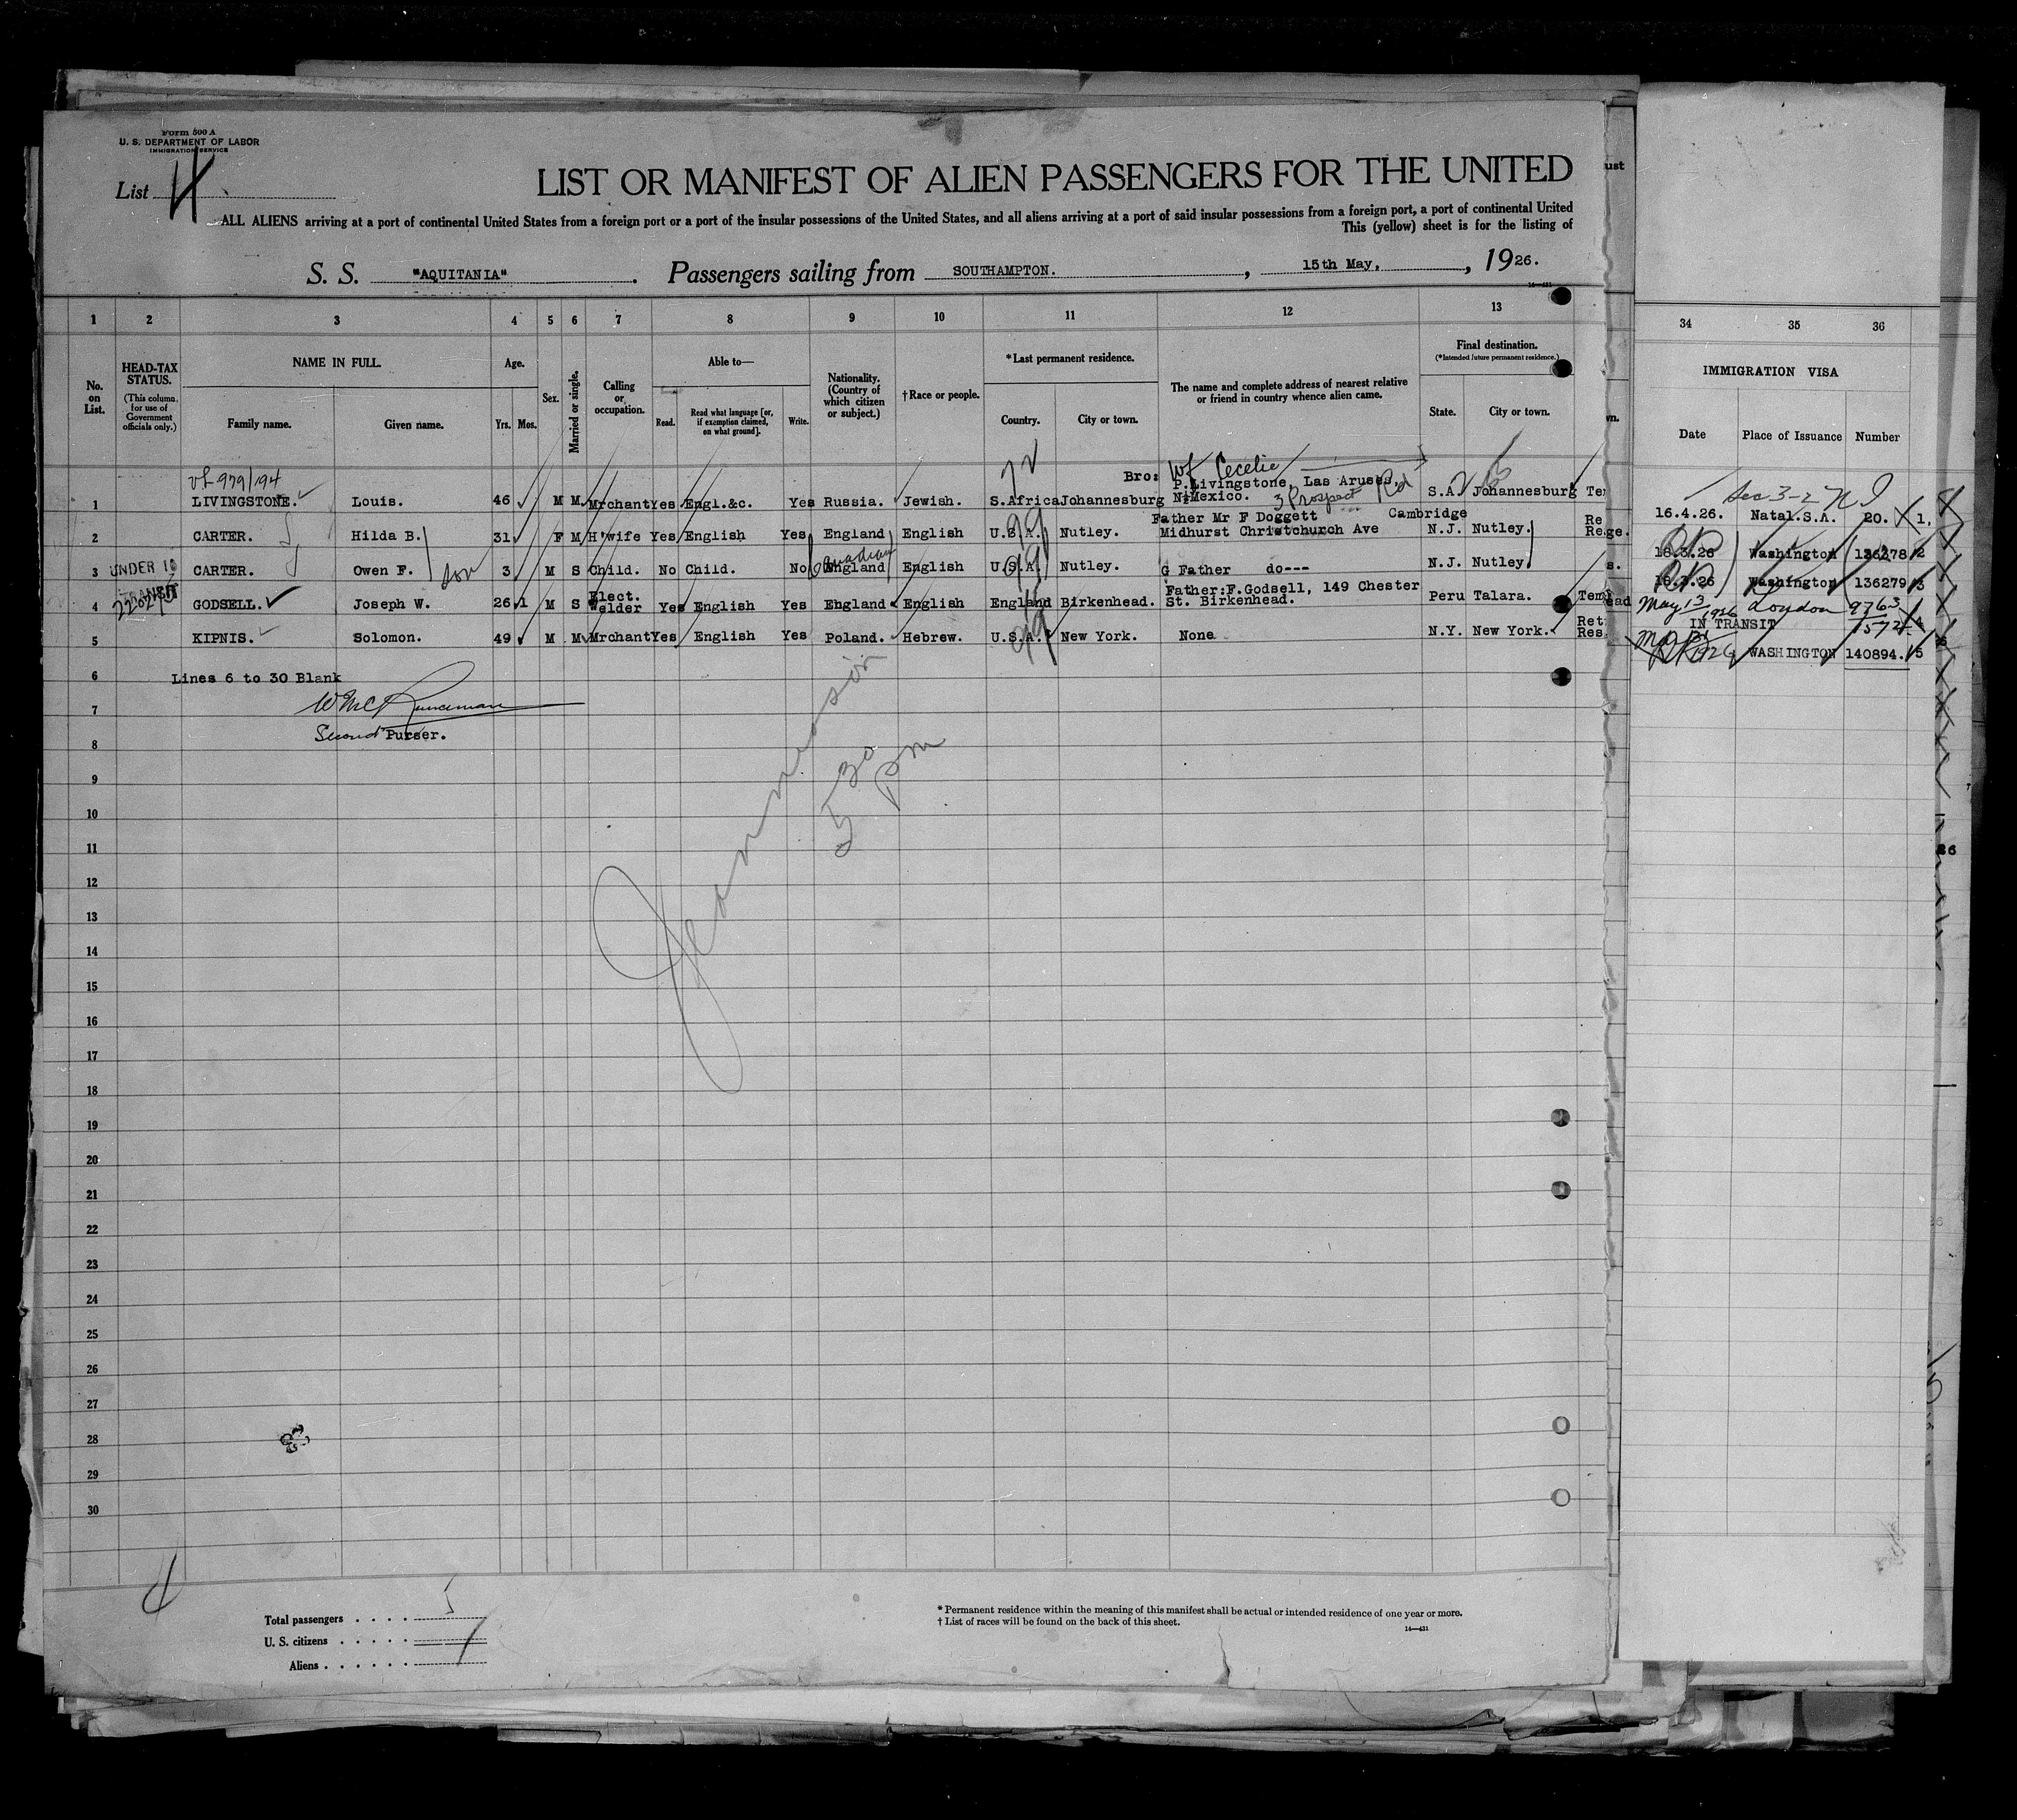 Form 500 A
U. S. DEPARTMENT OF LABOR
IMMIGRATION SERVICE
List 4
LIST OR MANIFEST OF ALIEN PASSENGERS FOR THE UNITED
ALL ALIENS arriving at a port of continental United States from a foreign port or a port of the insular possessions of the United States, and all aliens arriving at a port of said insular possessions from a foreign port, a port of continental United
This (yellow) sheet is for the listing of
S. S. "AQUITANIA" . Passengers sailing from SOUTHAMPTON. , 15th May. , 1926.
1 2 3 4 5 6 7 8 9 10 11 12 13
34 35 36
No. on List.
HEAD-TAX STATUS.
(This column for use of Government officials only.)
NAME IN FULL.
Family name. Given name.
Age.
Yrs. Mos.
Sex.
Married or single.
Calling or occupation.
Able to—
Read. Read what language [or, if exemption claimed, on what ground]. Write.
Nationality. (Country of which citizen or subject.)
†Race or people.
*Last permanent residence.
Country. City or town.
The name and complete address of nearest relative or friend in country whence alien came.
Final destination.
(*Intended future permanent residence.)
State. City or town.
IMMIGRATION VISA
Date Place of Issuance Number
979/194
Wf Cecelie
3 Prospect Rd
Sec 3-2
1 LIVINGSTONE. Louis. 46 M M Mrchant Yes Engl.&c. Yes Russia. Jewish. S.Africa Johannesburg Bro: P.Livingstone, Las Aruses, N.Mexico. S.A. Johannesburg 16.4.26. Natal.S.A. 20. 1,
2 CARTER. Hilda B. 31 F M H'wife Yes English Yes England English U.S.A. Nutley. Father Mr F Doggett Cambridge Midhurst Christchurch Ave N.J. Nutley. 18.3.26 Washington 136278 2
3 UNDER 16 CARTER. Owen F. son 3 M S Child. No Child. No England Canadian English U.S.A. Nutley. G Father do--- N.J. Nutley 18.3.26 Washington 136279 3
4 TRANSIT GODSELL. Joseph W. 26 1 M S Elect. Welder Yes English Yes England English England Birkenhead. Father:F.Godsell, 149 Chester St. Birkenhead. Peru Talara. May 13 1926 London 9763 IN TRANSIT 4
5 KIPNIS. Solomon. 49 M M Mrchant Yes English Yes Poland. Hebrew. U.S.A. New York. None N.Y. New York. WASHINGTON 140894. 5
6 Lines 6 to 30 Blank
7
Second Purser.
8
9
10
11
12
13
14
15
16
17
18
19
20
21
22
23
24
25
26
27
28
29
30
5 30 pm
Total passengers . . . . 5
U. S. citizens . . . . .
Aliens . . . . . .
* Permanent residence within the meaning of this manifest shall be actual or intended residence of one year or more.
† List of races will be found on the back of this sheet.
14—431